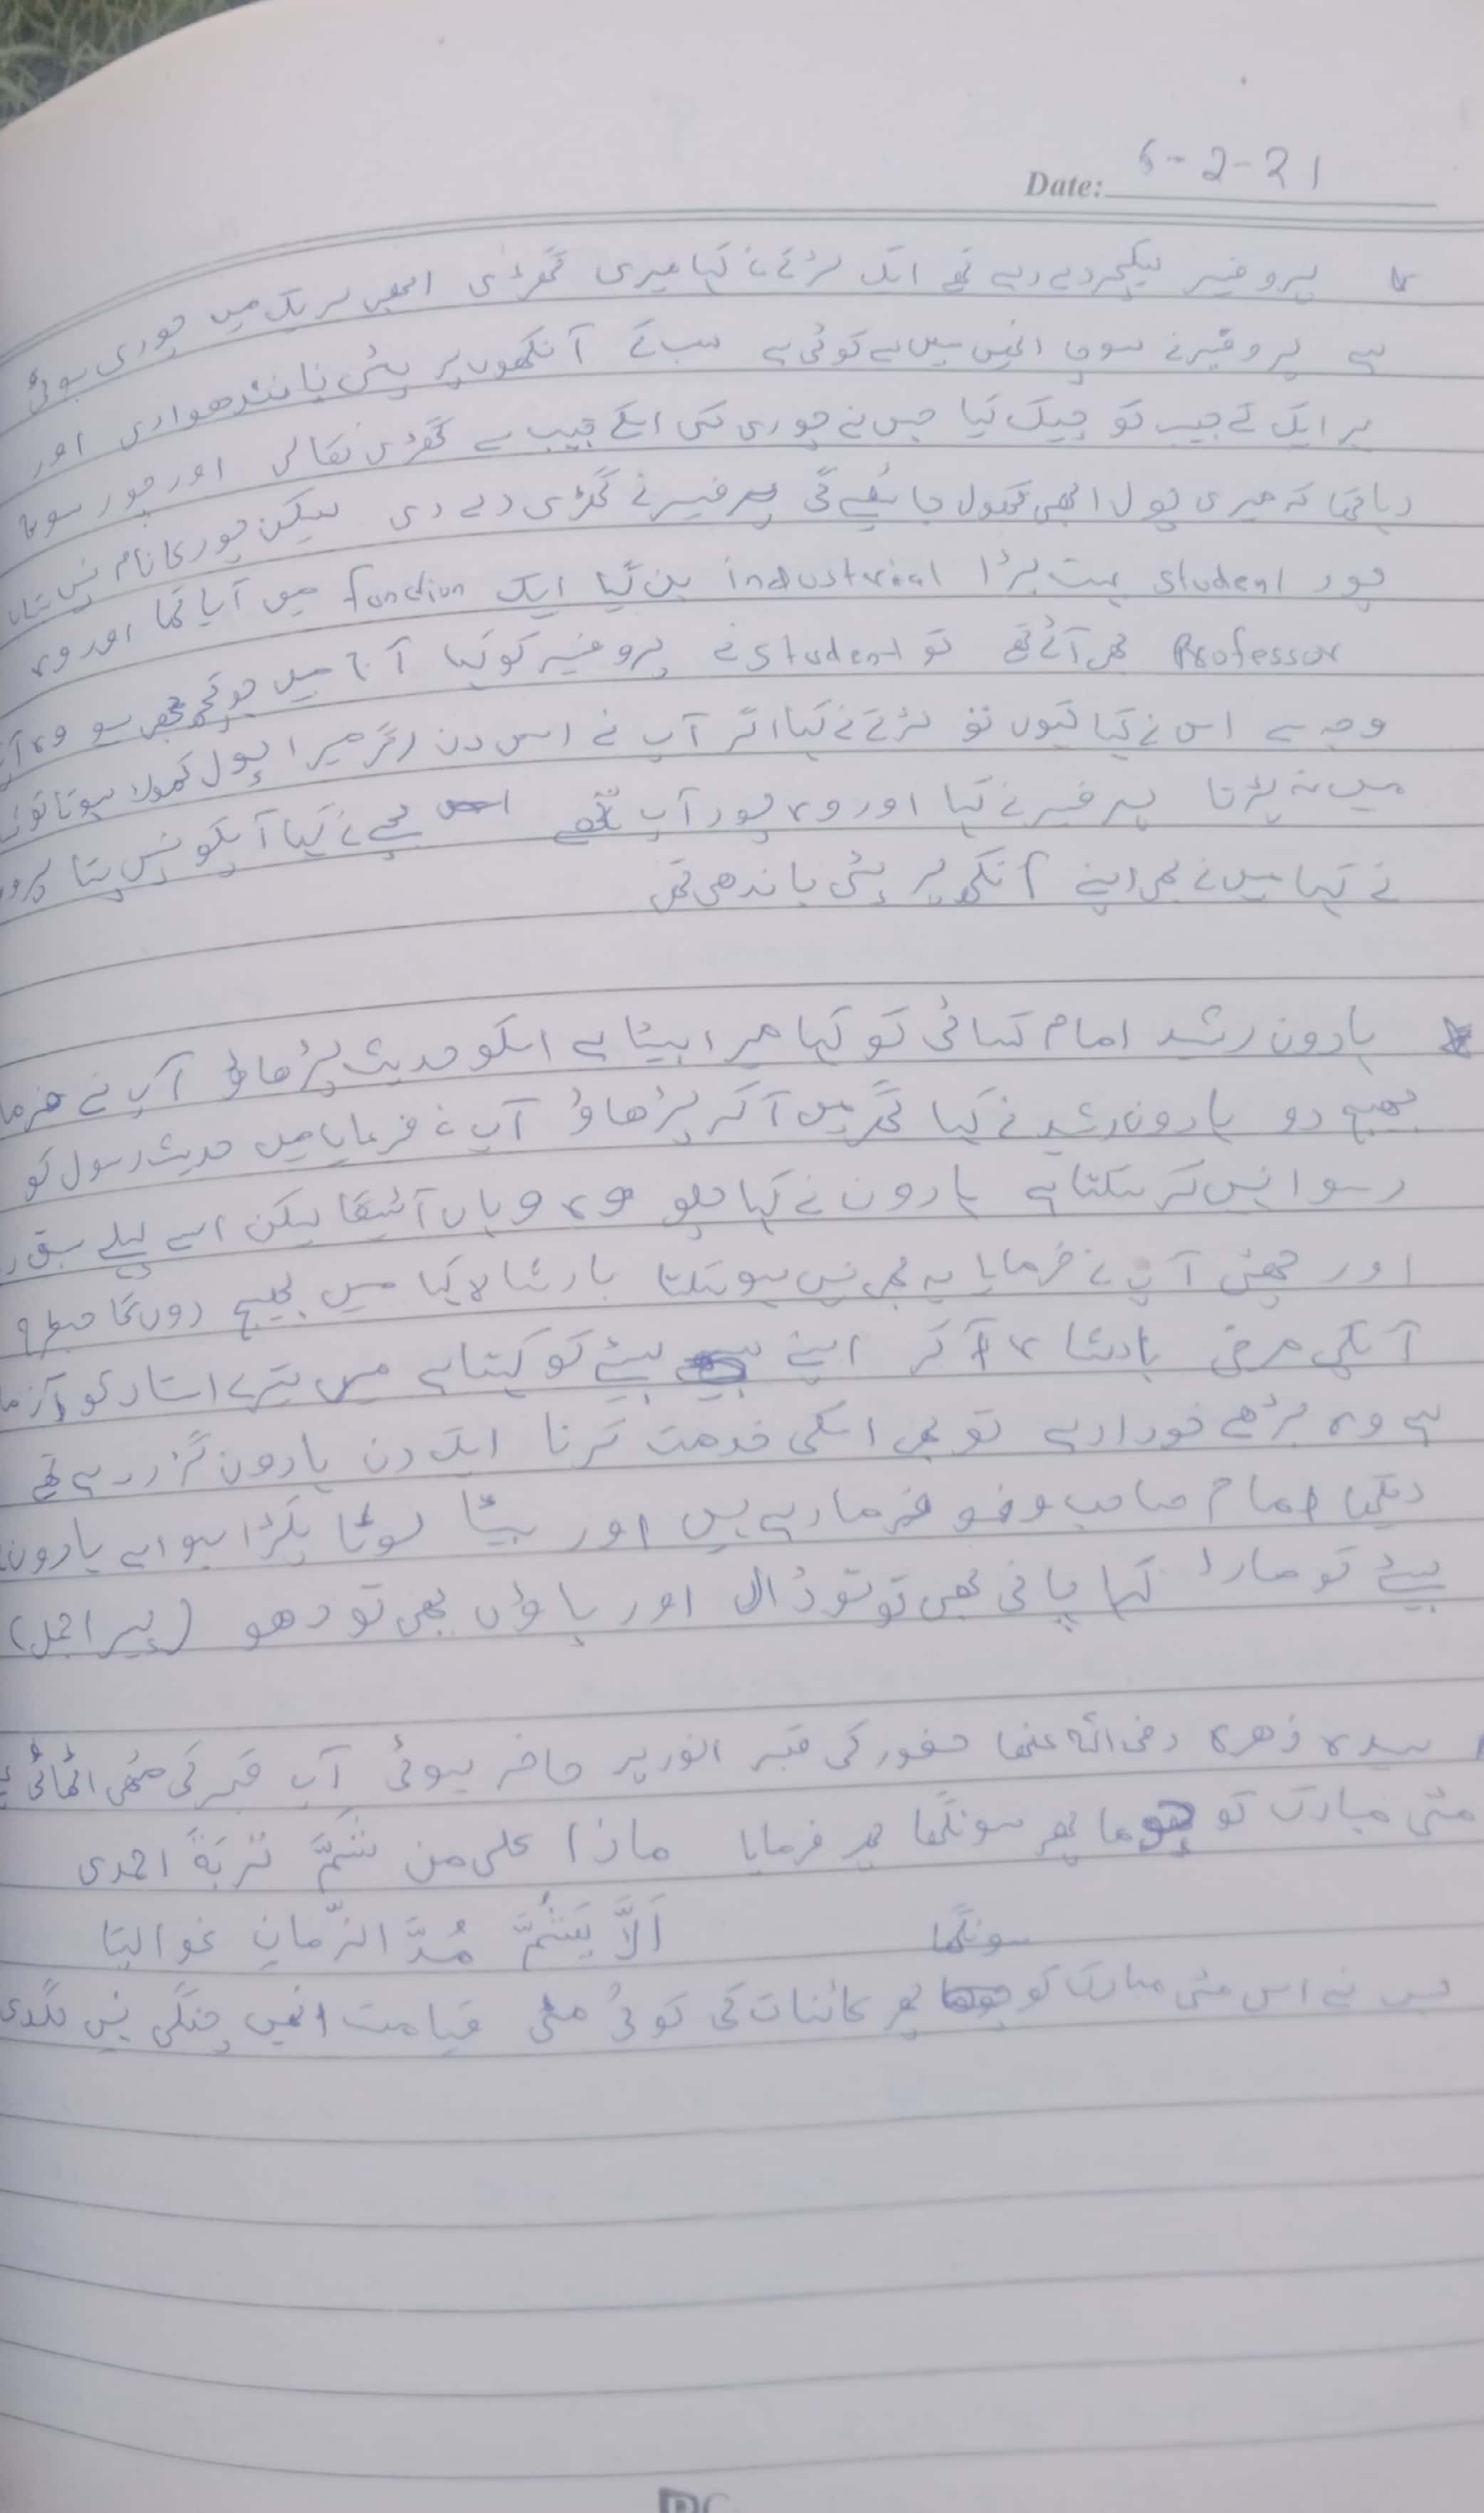 Date: 6-2-21
پروفیسر لیکچر دے رہے تھے ایک لڑکے نے کہا میری گھڑی ابھی بریک میں چوری ہوئی
ہے پروفیسر نے سوچا انہیں میں سے کوئی ہے سب کے آنکھوں پر پٹی باندھوا دی اور
ہر ایک کے جیب کو چیک کیا جس نے چوری کی اسکے جیب سے گھڑی نکالی اور چور سوچ
رہا تھا کہ میری پول ابھی کھول جائے گی پرفیسر نے گھڑی دے دی لیکن چور کا نام نہیں بتایا
چور student بہت بڑا industrial بن گیا ایک function میں آیا تھا اور وہ
Professor بھی آئے تھے تو student نے پروفیسر کو کہا آج میں جو کچھ بھی ہو وہ آپ
وجہ سے اس نے کہا کیوں تو لڑکے نے کہا اگر آپ نے اس دن اگر میرا پول کھولا ہوتا تو
میں نہ پڑتا پرفیسر نے کہا اور وہ چور آپ تھے بچے نے کہا آپکو نہیں پتا
نے کہا میں نے بھی اپنے آنکھ پر پٹی باندھی تھی
ہارون رشید امام کسائی کو کہا میرا بیٹا ہے اسکو حدیث پڑھاؤ آپ نے فرما
بھیج دو ہارون رشید نے کہا گھر میں آکر پڑھاؤ آپ نے فرمایا میں حدیث رسول کو
رسوا نہیں کر سکتا ہے ہارون نے کہا چلو وہ وہاں آئیگا لیکن اسے پہلے سبق
اور چھٹی آپ نے فرمایا یہ بھی نہیں ہو سکتا بادشاہ کہا میں بھیج دوں گا
آپکی مرضی بادشاہ آکر اپنے بیٹے کو کہتا ہے میں تیرے استاد کو آزما
ہے وہ بڑھے خودار ہے تو بھی اسکی خدمت کرنا ایک دن ہارون گزر رہے تھے
دیکھا امام صاحب وضو فرما رہے ہیں اور بیٹا لوٹا پکڑا ہوا ہے ہارون
بیٹے کو مارا کہا پانی بھی تو تو ڈال اور پاؤں بھی تو دھو (پیر اجمل)
سیدہ زھرہ رضی اللہ عنھا حضور کی قبر انور پر حاضر ہوئی آپ قبر کی مٹھی اٹھائی
مٹی مبارک کو چوما پھر سونگھا پھر فرمایا ماذا علی من شَمَّ تُربَۃً احمدی
اَلَّا یَشُمَّ مُدَّ الزّمانِ غوالیَا
سونگھا
جس نے اس مٹی مبارک کو پھر کائنات کی کوئی مٹی قیامت انھیں چنگی نہیں لگدی